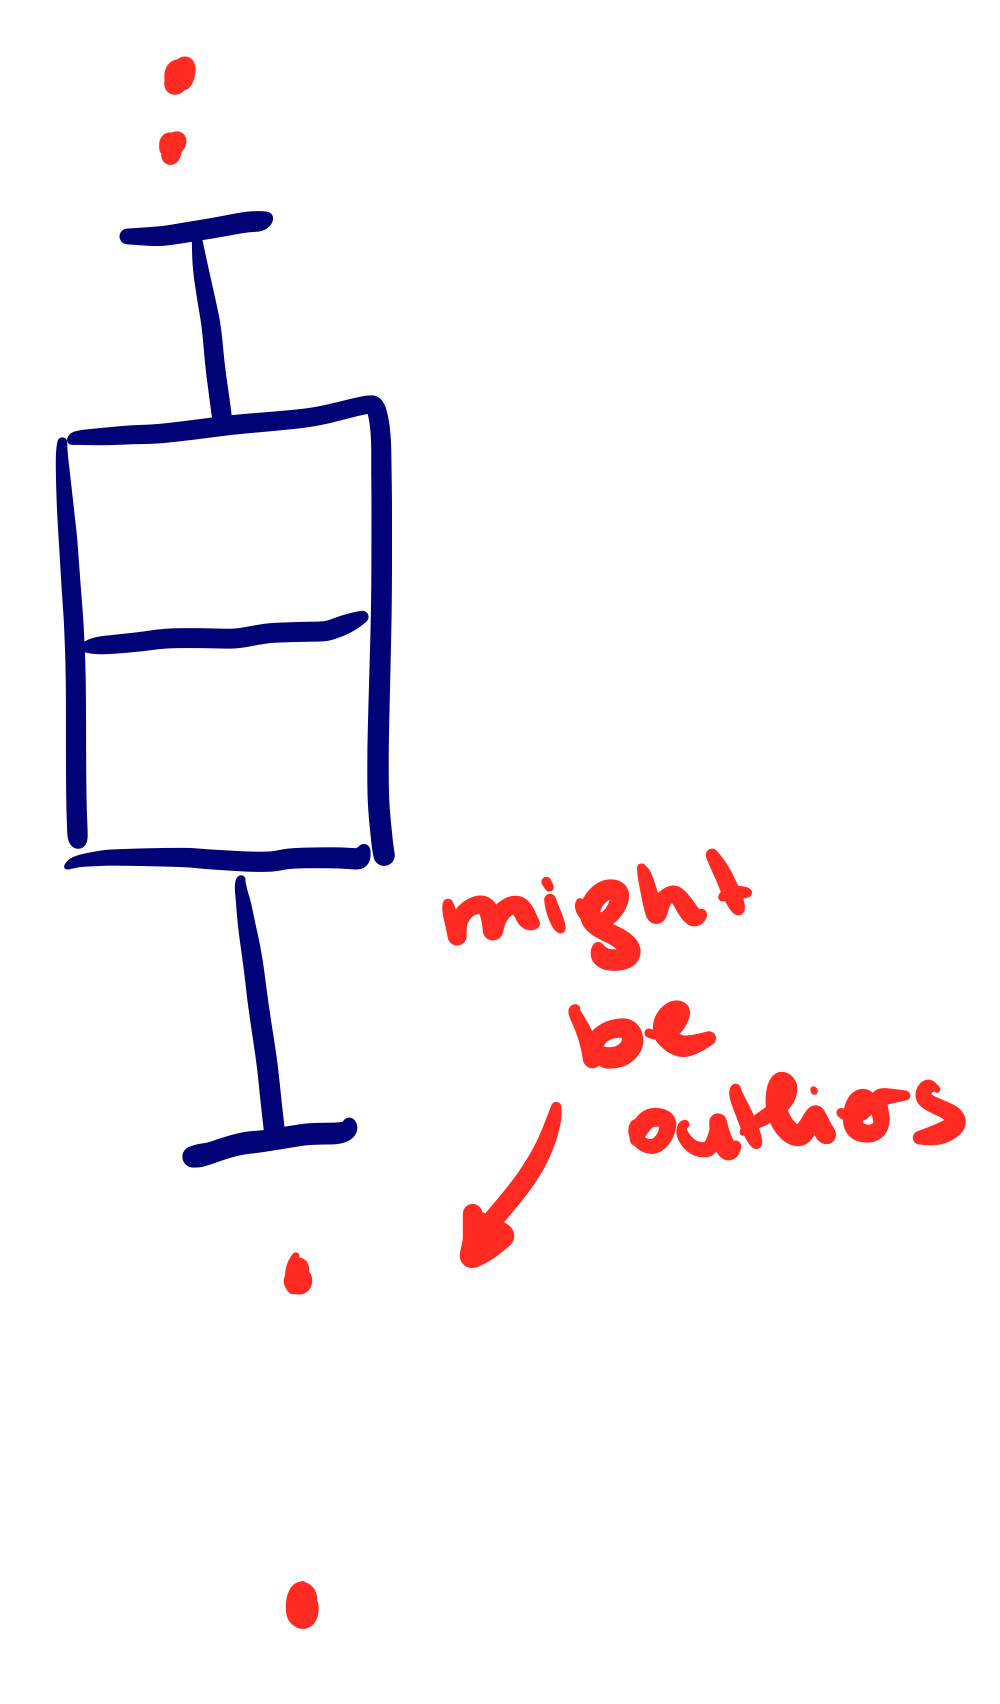 might
be
outliors